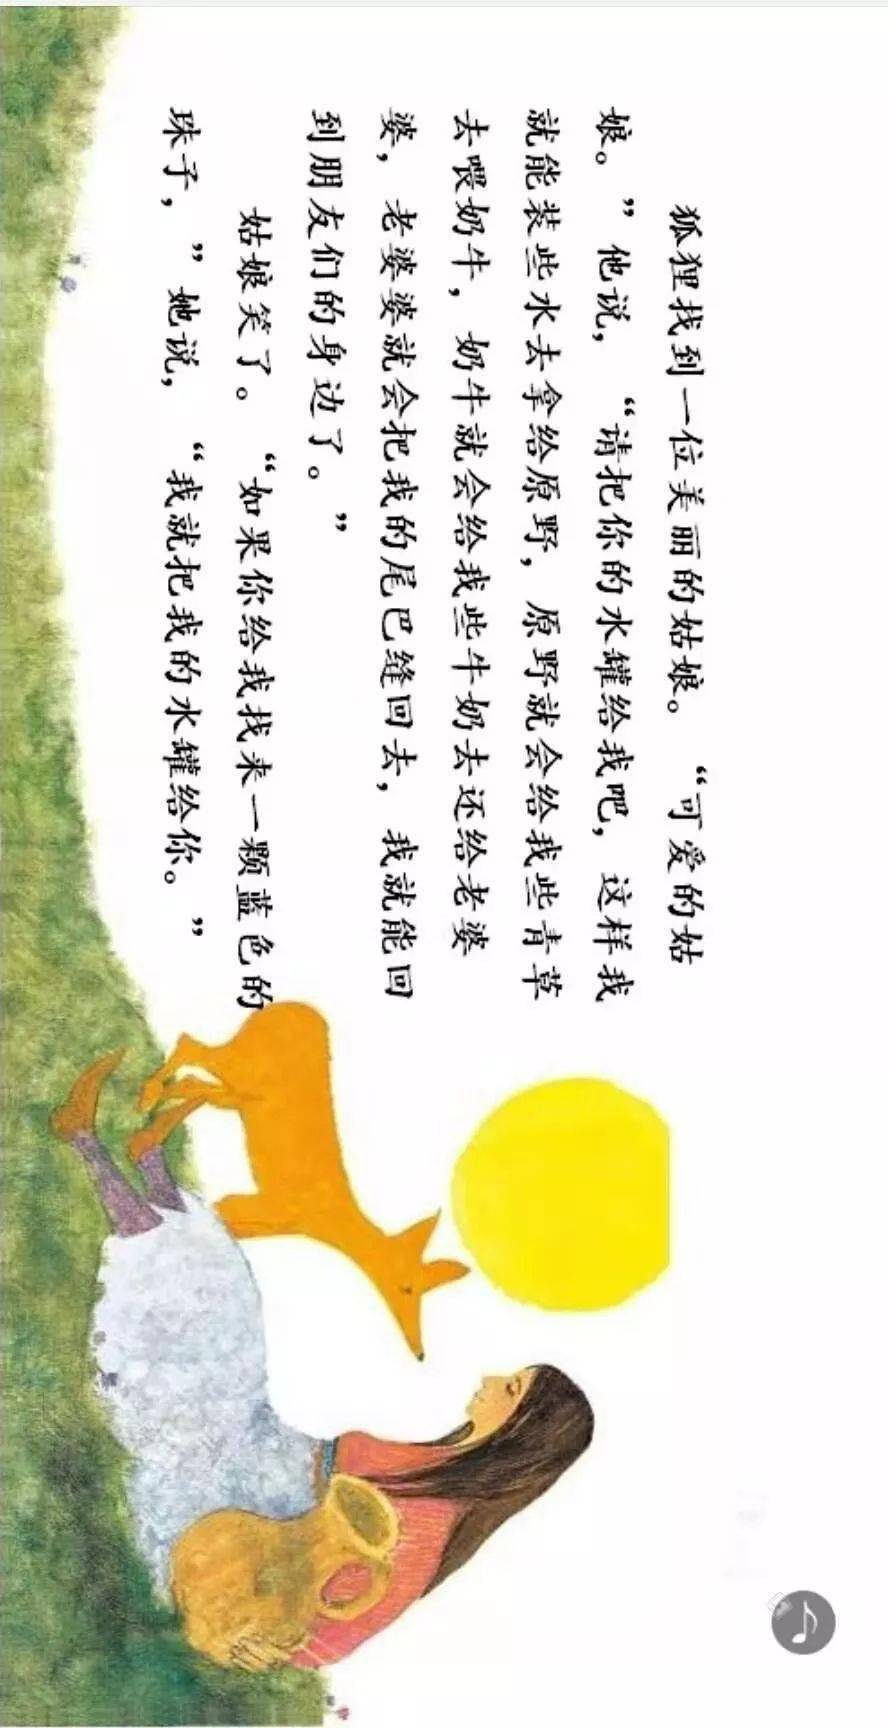 狐狸找到一位美丽的姑娘。“可爱的姑
娘。”他说，“请把你的水罐给我吧，这样我
就能装些水去拿给原野，原野就会给我些青草
去喂奶牛，奶牛就会给我些牛奶去还给老婆
婆，老婆婆就会把我的尾巴缝回去，我就能回
到朋友们的身边了。”
姑娘笑了。“如果你给我找来一颗蓝色的
珠子，”她说，“我就把我的水罐给你。”